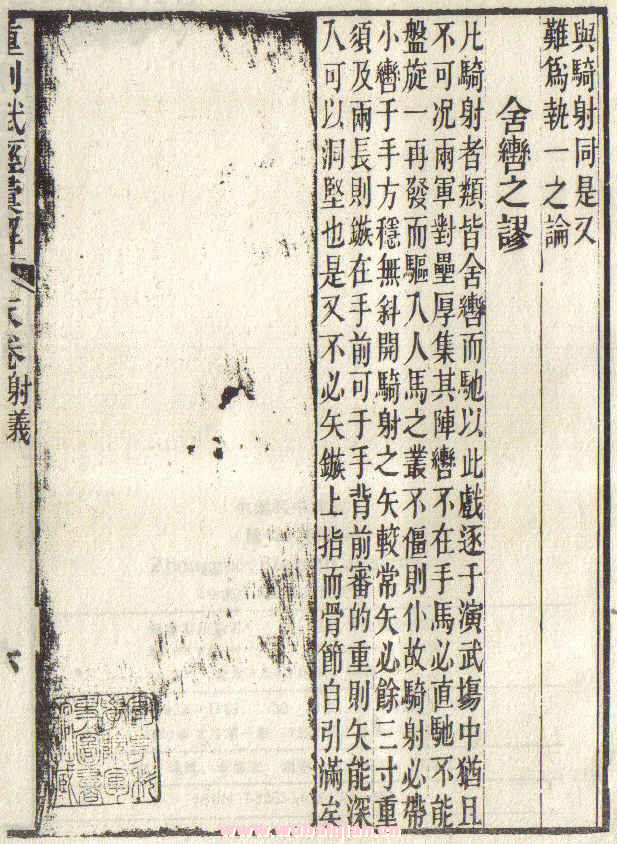 與騎射同是又
難爲執一之論
舍轡之謬
凡騎射者類皆舍轡而馳以此戲逐于演武塲中猶且
不可况兩軍對壘厚集其陣轡不在手馬必直馳不能
盤旋一再發而驅入人馬之叢不僵則仆故騎射必帶
小轡于手方穩無斜開騎射之矢較常矢必餘三寸重
須及兩長則鏃在手前可于手背前審的重則矢能深
入可以洞堅也是又不必矢鏃上指而骨節自引滿矣
重刻武經彙解
末卷射義
六